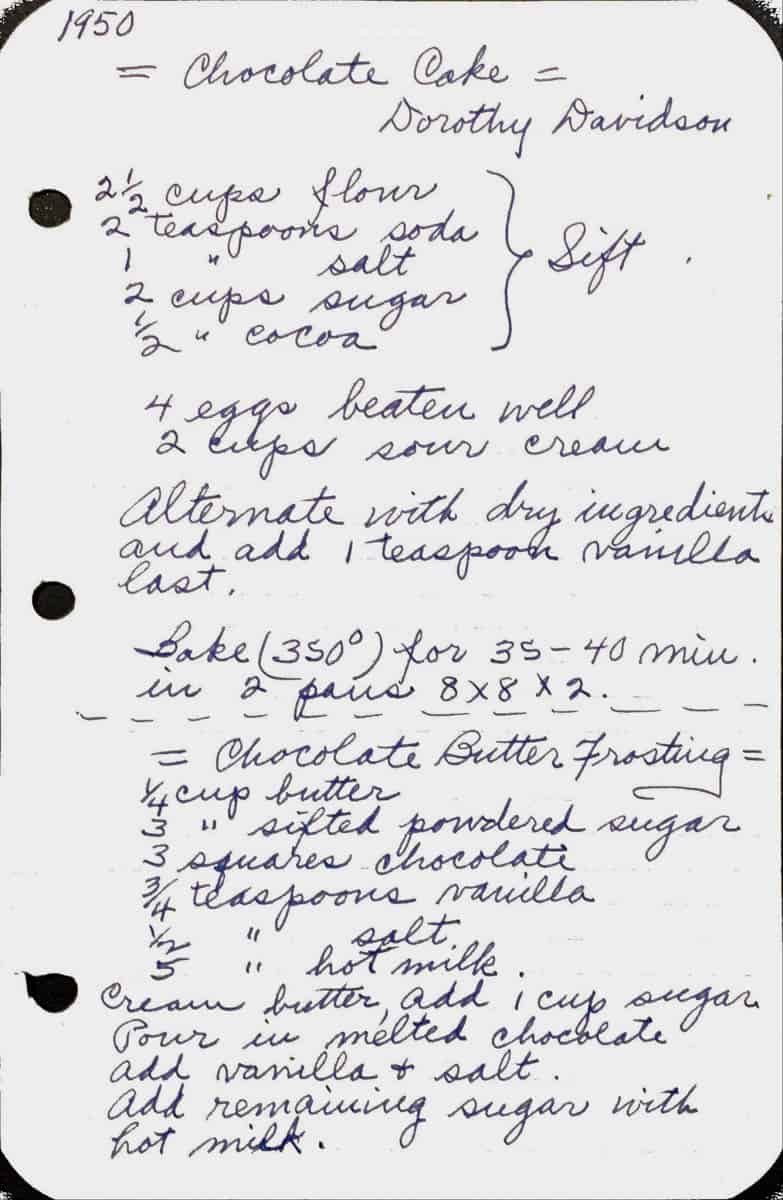 1950
= Chocolate Cake =
Dorothy Davidson
2 1/2 cups flour
2 teaspoons soda
1 " salt
2 cups sugar
1/2 " cocoa
} Sift.
4 eggs beaten well
2 cups sour cream
Alternate with dry ingredients
and add 1 teaspoon vanilla
last.
Bake (350°) for 35-40 min.
in 2 pans 8x8x2.
= Chocolate Butter Frosting =
1/4 cup butter
3 " sifted powdered sugar
3 squares chocolate
3/4 teaspoons vanilla
1/2 " salt
5 " hot milk.
Cream butter, add 1 cup sugar
Pour in melted chocolate
add vanilla + salt.
Add remaining sugar with
hot milk.